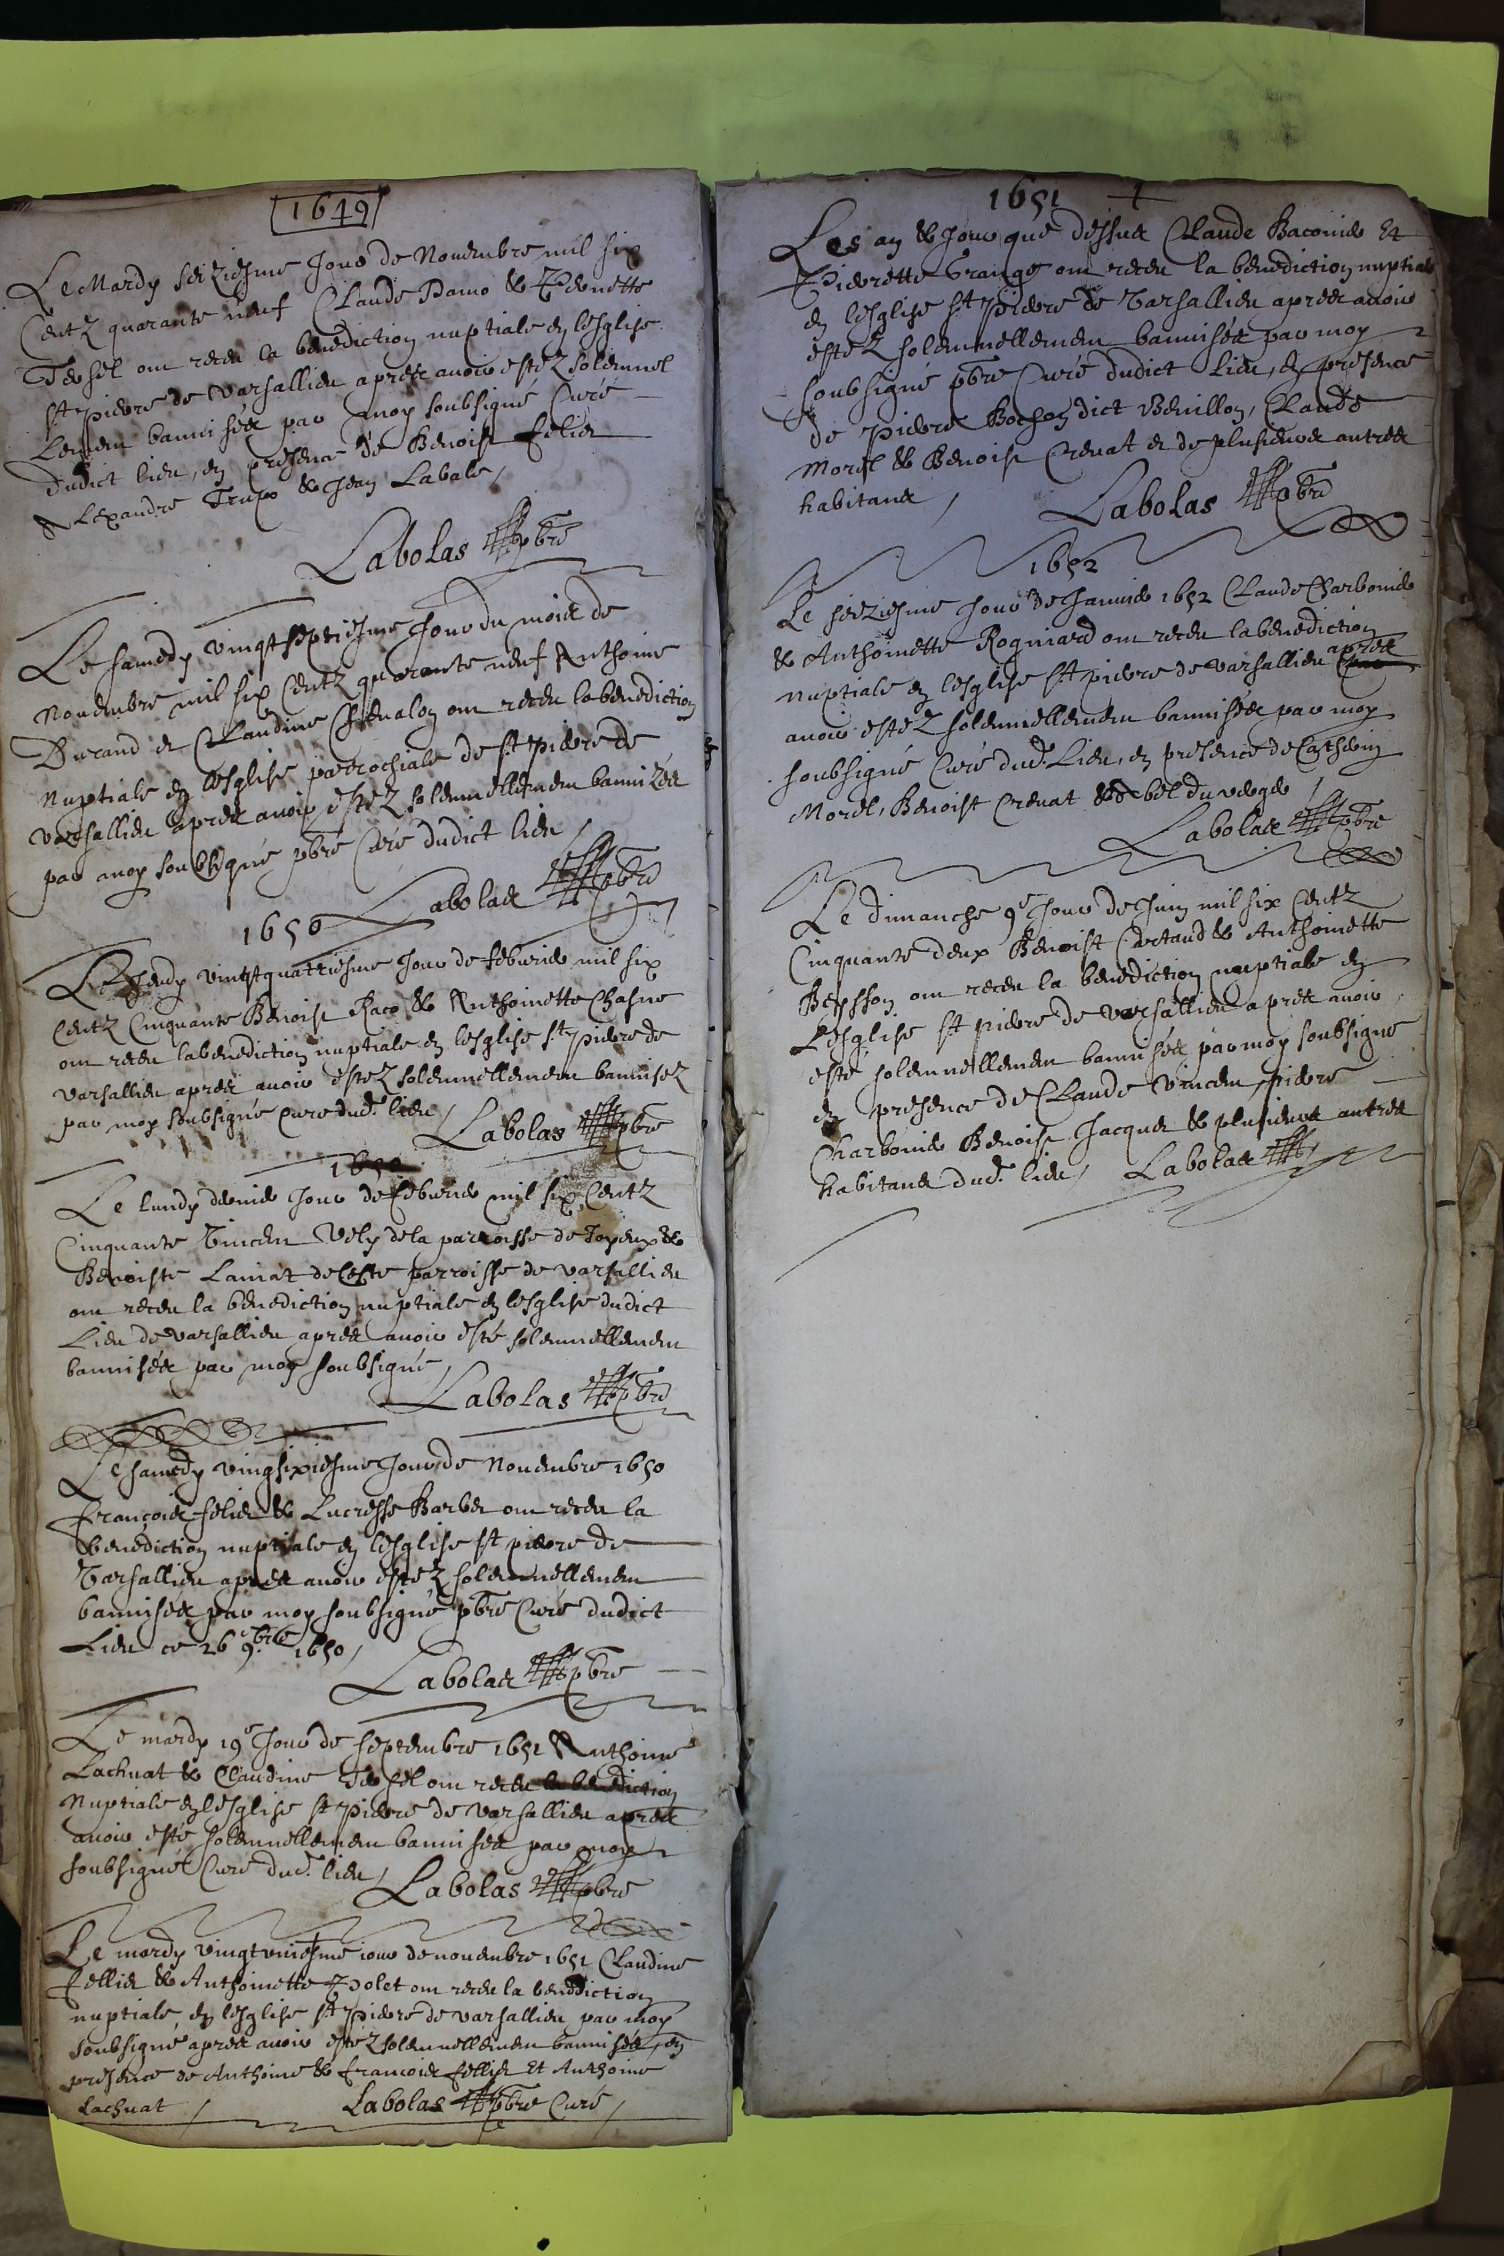 1649
Le Mardy seiziesme Jour de Nouembre mil six
Centz quarante neuf Claude Damo & Pernette
Tersel ont receu la benediction nuptiale en lesglise
st Pierre de Varsallieu apres auoir estez solemnel
lement bannisés par moy soubsigné Curé
dudict lieu, en presence de Benoist felier
Alexandre Trupo & Jean Labale /
Labolas pbre
Le samedy vingt septiesme Jour du mois de
Nouembre mil six Centz quarante neuf Anthoine
Durand et Claudine Cheualon ont receu la benediction
nuptiale en lesglise parrochiale de st pierre de
varsallieu apres auoir estez solemnellement bannizés
par moy soubsigné pbre Curé dudict lieu /
Labolas pbre
1650
Le Jeudy vingtquattriesme Jour de feburier mil six
Centz Cinquante Benoist Raco & Anthoinette Chasne
ont receu la benediction nuptiale en lesglise st Pierre de
varsallieu apres auoir estez solemnellement bannisez
par moy soubsigné Curé dud. lieu /
Labolas pbre
1650
Le lundy dernier Jour de feburier mil six Centz
Cinquante Vincent Vely de la parroisse de Joyeux &
Benoiste Laniat de Ceste parroisse de varsallieu
ont receu la benediction nuptiale en lesglise dudict
Lieu de varsallieu apres auoir esté solemnellement
bannisés par moy soubsigné /
Labolas pbre
Le samedy vingsixiesme Jour de Nouembre 1650
françois felier & Lucresse Barber ont receu la
benediction nuptiale en lesglise st pierre de
Varsallieu apres auoir estez solemnellement
bannisés par moy soubsigné pbre Curé dudict
Lieu ce 26 9.bre 1650 /
Labolas pbre
Le mardy 19e Jour de septembre 1651 Anthoine
Lachuat & Claudine Tersel ont receu la benediction
Nuptiale en lesglise st Pierre de varsallieu apres
auoir esté solemnellement bannisés par moy
soubsigné Curé dud. lieu /
Labolas pbre
Le mardy vingtvniesme iour de nouembre 1651 Claudine
fellier & Anthoinette Polet ont receu la benediction
nuptiale, en lesglise st Pierre de varsallieu par moy
soubsigné apres auoir estez solemnellement bannisés, en
presence de Anthoine & francois fellier Et Anthoine
Lachuat /
Labolas pbre Curé /
1651
Les an & Jour que dessus Claude Baconier Et
Pierrette Grange ont receu la benediction nuptiale
en lesglise st Pierre de Varsallieu apres auoir
estez solemnellement bannisés par moy
soubsigné pbre Curé dudict Lieu, en presence
de Pierre Boson dict Benillon, Claude
Morel & Benoist Crenat et de plusieurs autres
habitans /
Labolas pbre
1652
Le seiziesme Jour de Januier 1652 Claude Charbonier
& Anthoinette Rogniard ont receu la benediction
nuptiale en lesglise st pierre de varsallieu apres
auoir estez solemnellement bannisés par moy
soubsigné Curé dud. Lieu, en presence de Catherin
Morel, Benoist Crenat & Abel du verger /
Labolas pbre
Le dimanche 9e Jour de Juin mil six Centz
Cinquante deux Benoist Cartaud & Anthoinette
Beysson ont receu la benediction nuptiale en
Lesglise st pierre de varsallieu apres auoir
esté solemnellement bannisés par moy soubsigné
en presence de Claude Vincent, pierre
Charbonier Benoist Jacques & plusieurs autres
habitans dud. lieu /
Labolas